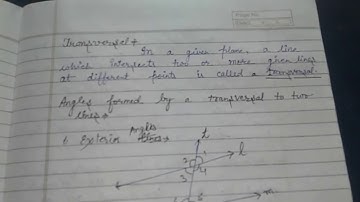 Page No.
Date
Transversal →
In a given plane, a line
which Intersects two or more given lines
at different points is called a Transversal.
Angles formed by a transversal to two
lines →
6 Exterior Angles →
t
2 1 l
3 4
m